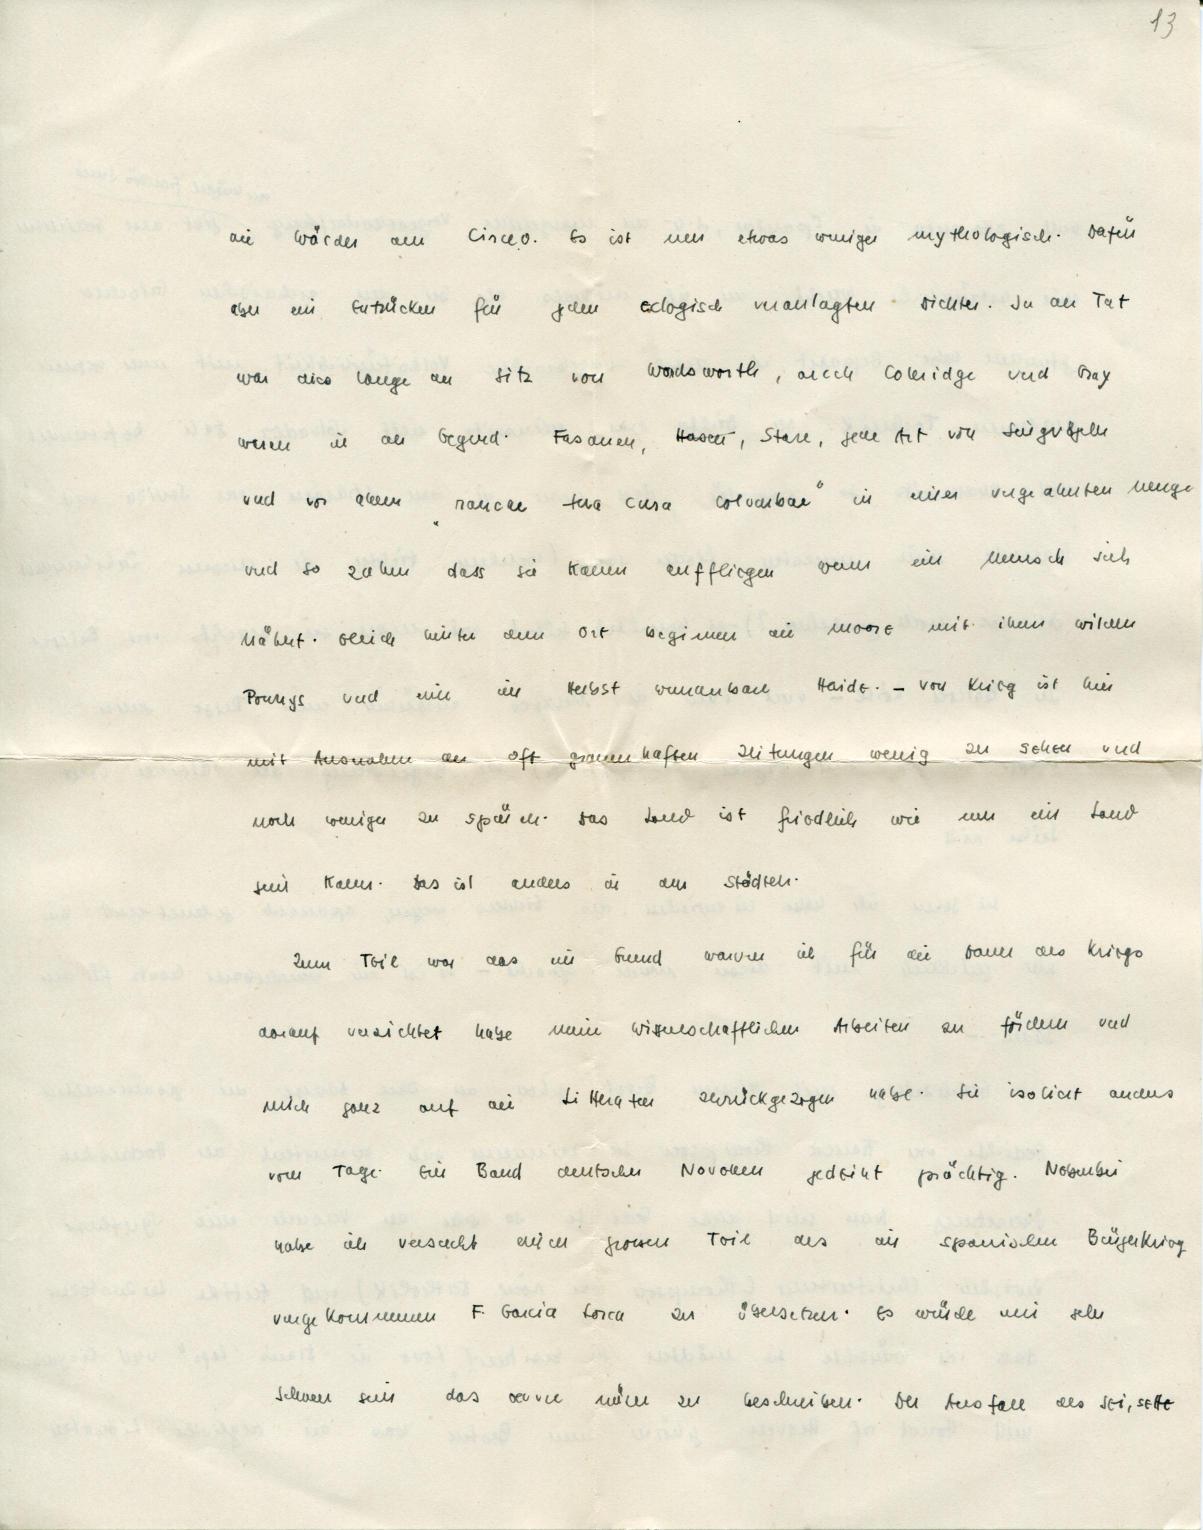 13
die Wälder am Circeo. Es ist nur etwas weniger mythologisch. Dafür
aber ein Entzücken für jeden eclogisch veranlagten Dichter. In der Tat
war dies lange der Sitz von Wordsworth, auch Coleridge und Gay
waren in der Gegend. Fasanen, Hasen, Stare, jede Art von Singvögeln
und vor allem „raucae tua cura columbae" in einer ungeahnten Menge
und so zahm dass sie kaum auffliegen wenn ein Mensch sich
nähert. Gleich hinter dem Ort beginnen die Moore mit ihren wilden
Ponnys und einer im Herbst wunderbaren Haide. – Von Krieg ist hier
mit Ausnahme der oft grauenhaften Zeitungen wenig zu sehen und
noch weniger zu spüren. Das Land ist friedlich wie nur ein Land
sein kann. Das ist anders in den Städten.
Zum Teil war das ein Grund warum ich für die Dauer des Kriegs
darauf verzichtet habe meine wissenschaftlichen Arbeiten zu fördern und
mich ganz auf die Litteratur zurückgezogen habe. Sie isoliert anders
vom Tage. Ein Band deutscher Novellen gedeiht prächtig. Nebenbei
habe ich versucht einen grossen Teil des im spanischen Bürgerkrieg
umgekommenen F. Garcia Lorca zu übersetzen. Es würde mir sehr
schwer sein das oeuvre näher zu beschreiben. Der Ausfall des